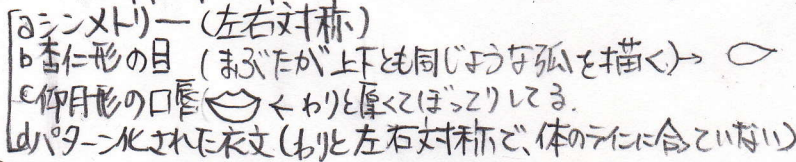 aシンメトリー(左右対称)
b杏仁形の目 (まぶたが上下とも同じような弧を描く)→
c仰月形の口唇 ←わりと厚くてぼってりしてる.
dパターン化された衣文(わりと左右対称で、体のラインに合っていない)